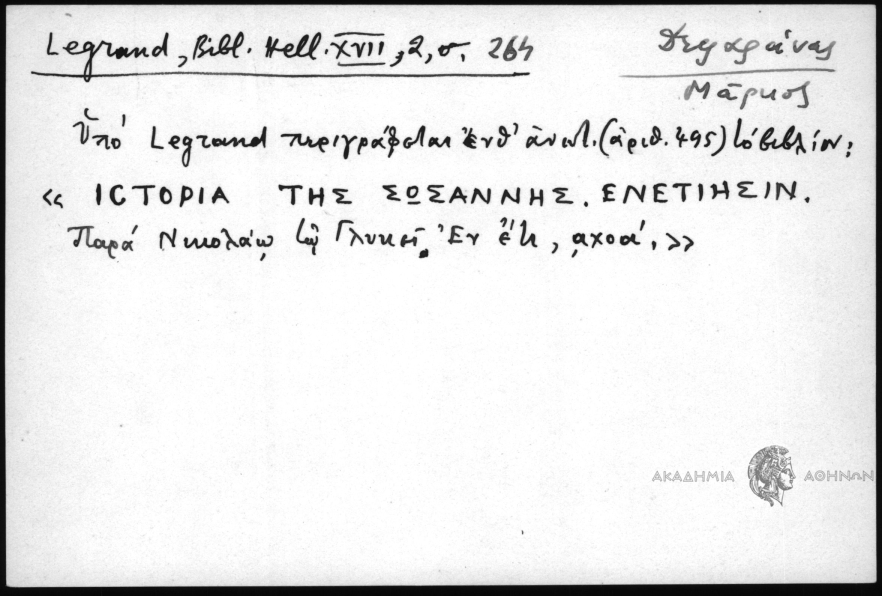 Legrand, Bibl. Hell. XVII, 2, σ. 264
Δεφαράνας
Μάρκος
Ὑπό Legrand περιγράφεται ἐνθ' ἀνωτ. (ἀριθ. 495) τό βιβλίον:
«ΙCΤΟΡΙΑ ΤΗΣ ΣΩΣΑΝΝΗΣ. ΕΝΕΤΙΗΣΙΝ.
Παρά Νικολάῳ τῷ Γλυκεῖ. Ἐν ἔτει, ͵αχοα΄.»
ΑΚΑΔΗΜΙΑ ΑΘΗΝΩΝ